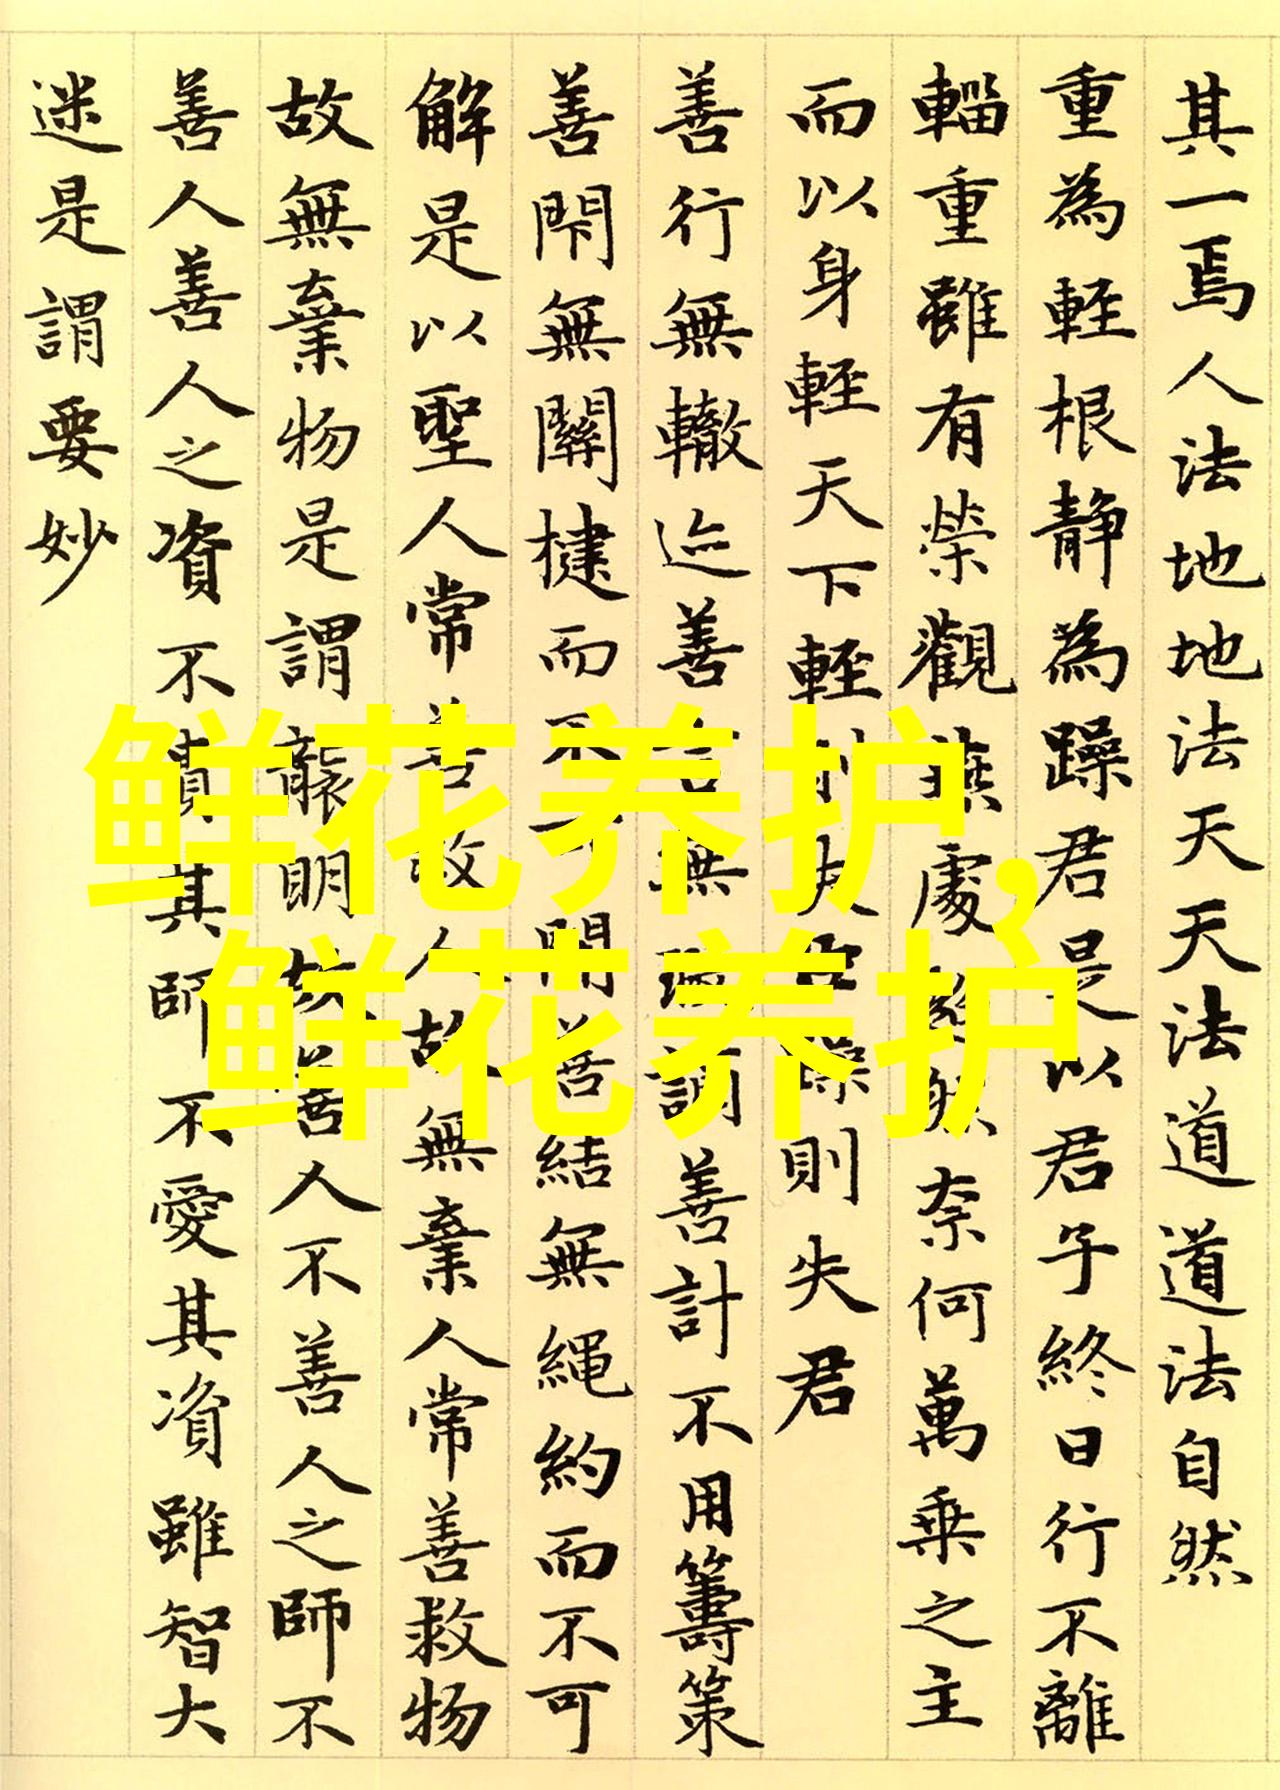 其一焉人法地地法天天法道道法自然
重為輕根静為躁君是以君子終日行不離
輜重雖有荣觀燕處超然奈何萬乘之主
而以身輕天下輕則失臣躁則失君
善行無轍迹善言無瑕謫善計不用籌策
善閇無關楗而不可開善結無繩約而不可
解是以聖人常善救人故無棄人常善救物
故無棄物是謂襲明故善人不善人之師不
善人善人之資不貴其師不愛其資雖智大
迷是謂要妙
鲜花养护,
鲜花养护